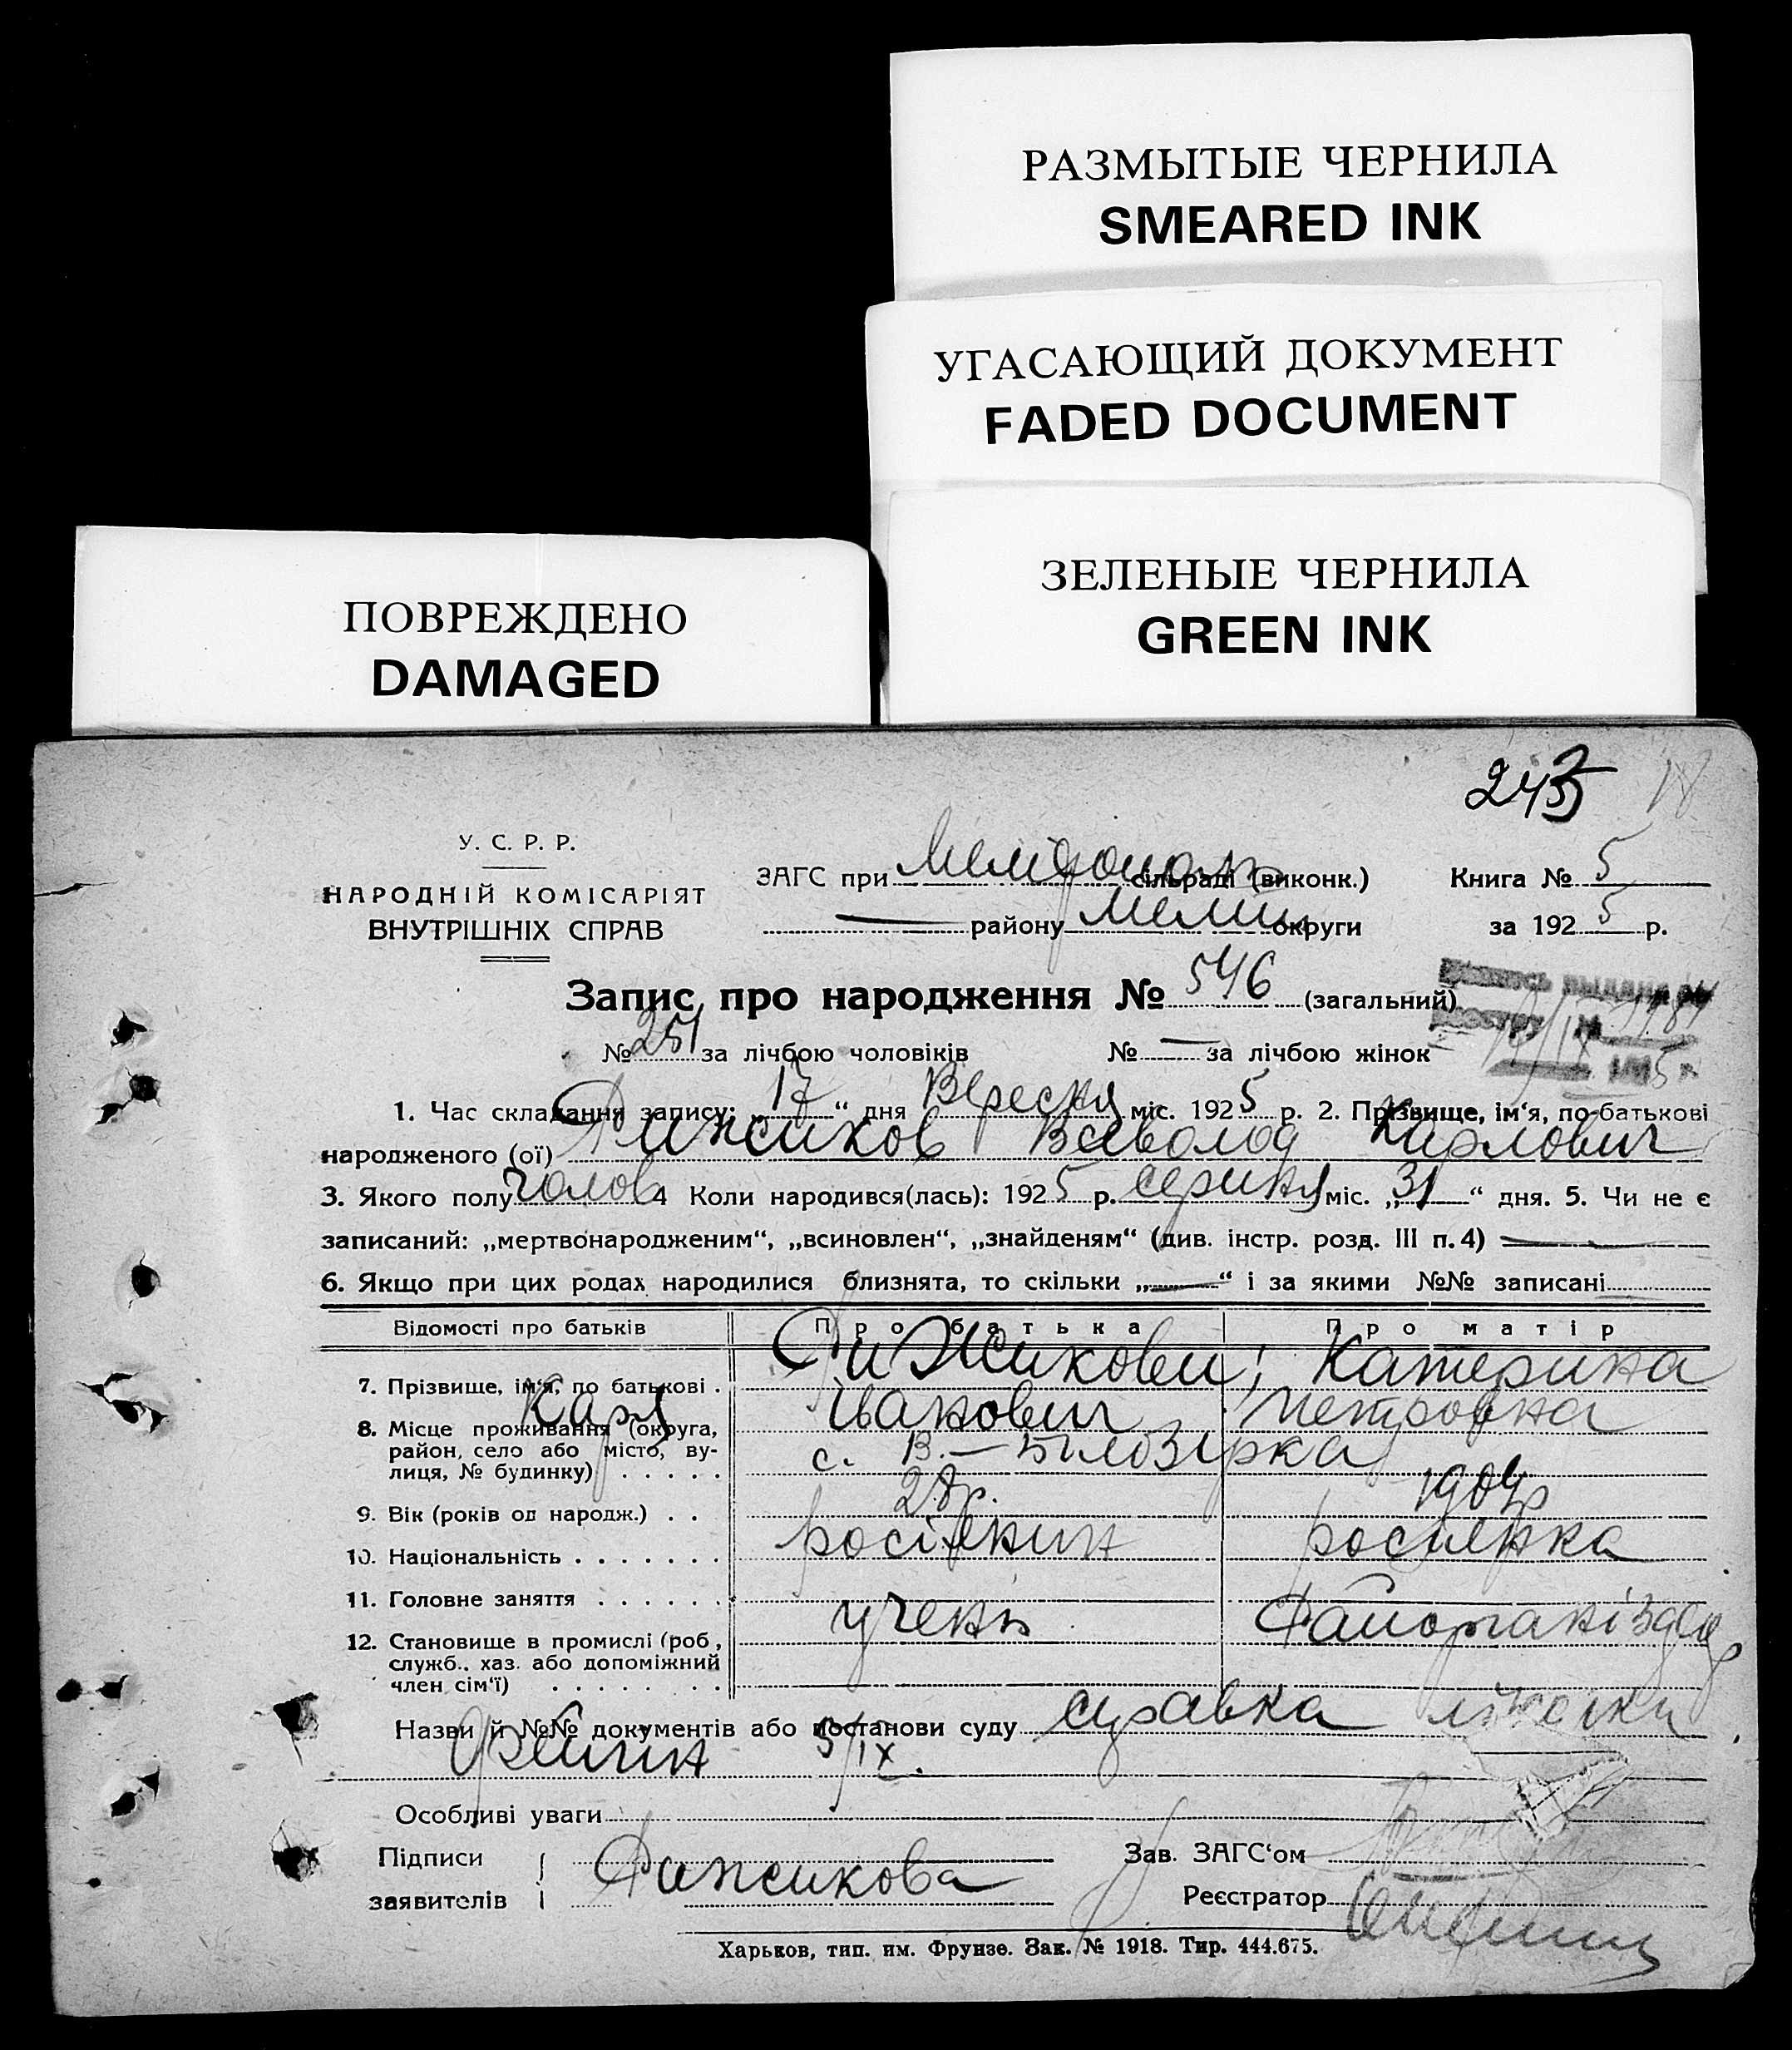 РАЗМЫТЫЕ ЧЕРНИЛА
SMEARED INK
УГАСАЮЩИЙ ДОКУМЕНТ
FADED DOCUMENT
ЗЕЛЕНЫЕ ЧЕРНИЛА
GREEN INK
ПОВРЕЖДЕНО
DAMAGED
У. С. Р. Р.
НАРОДНІЙ КОМІСАРІЯТ
ВНУТРІШНІХ СПРАВ
ЗАГС при сільраді (виконк.) Книга № 5
— району Мелит округи за 1925 р.
Запис про народження № 546 (загальний)
№ 251 за лічбою чоловіків № — за лічбою жінок
1. Час складання запису: 17 “ дня Вересня міс. 1925 р. 2. Прізвище, ім‘я, по-батькові
народженого (ої) Рижиков Всеволод Карлович
3. Якого полу чолов 4 Коли народився(лась): 1925 р. серпня міс. „31“ дня. 5. Чи не є
записаний: „мертвонародженим“, „всиновлен“, „знайденям“ (див. інстр. розд. III п. 4) —
6. Якщо при цих родах народилися близнята, то скільки „—“ і за якими №№ записані
Відомості про батьків Про батька Про матір
7. Прізвище, ім‘я, по батькові . Рижикови; Катерина
Карл Іванович Петровна
8. Місце проживання (округа, район, село або місто, вулиця, № будинку) . . . . . с. В.-Білозірка
9. Вік (років од народж.) . . 28р. 1904р
10. Національність . . . . . . . росіянин росіянка
11. Головне заняття . . . . . . учень
12. Становище в промислі (роб, служб., хаз. або допоміжний член сім‘ї) . . . . . . . .
Назви й №№ документів або постанови суду справка
5/IX.
Особливі уваги
Підписи Зав. ЗАГС‘ом
заявителів Рижикова Реєстратор
Харьков, тип. им. Фрунзе. Зак. № 1918. Тир. 444.675.